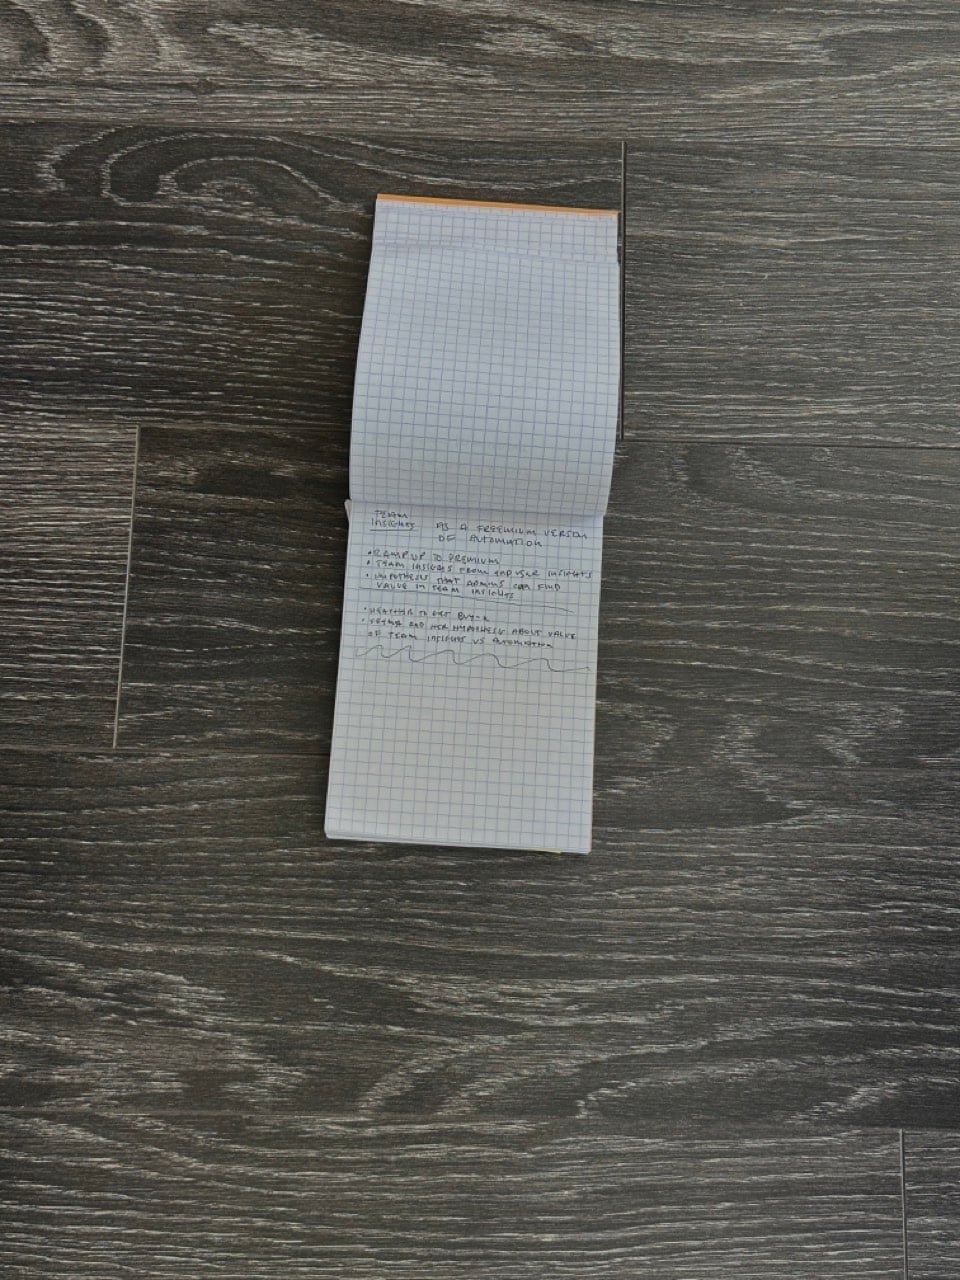 TEAM
INSIGHTS AS A FREEMIUM VERSION
OF AUTOMATION
• RAMP UP TO PREMIUM
• TEAM INSIGHTS FROM END USER INSIGHTS
• HYPOTHESIS THAT ADMINS CAN FIND
VALUE IN TEAM INSIGHTS
• HEATHER TO GET BUY-IN
• AND HER HYPOTHESIS ABOUT VALUE
OF TEAM INSIGHTS VS AUTOMATION